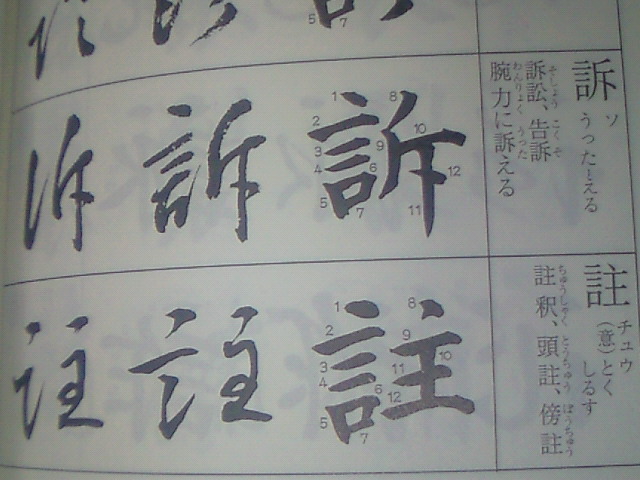 5 7
訴 ソ
うったーえる
そしょう こくそ
訴訟、告訴
わんりょく うった
腕力に訴える
訴
1 2 3 4 5 6 7 8 9 10 11 12
訴
訴
註 チュウ
(意)とく
しるす
ちゅうしゃく とうちゅう ぼうちゅう
註釈、頭註、傍註
註
1 2 3 4 5 6 7 8 9 10 11 12
註
註